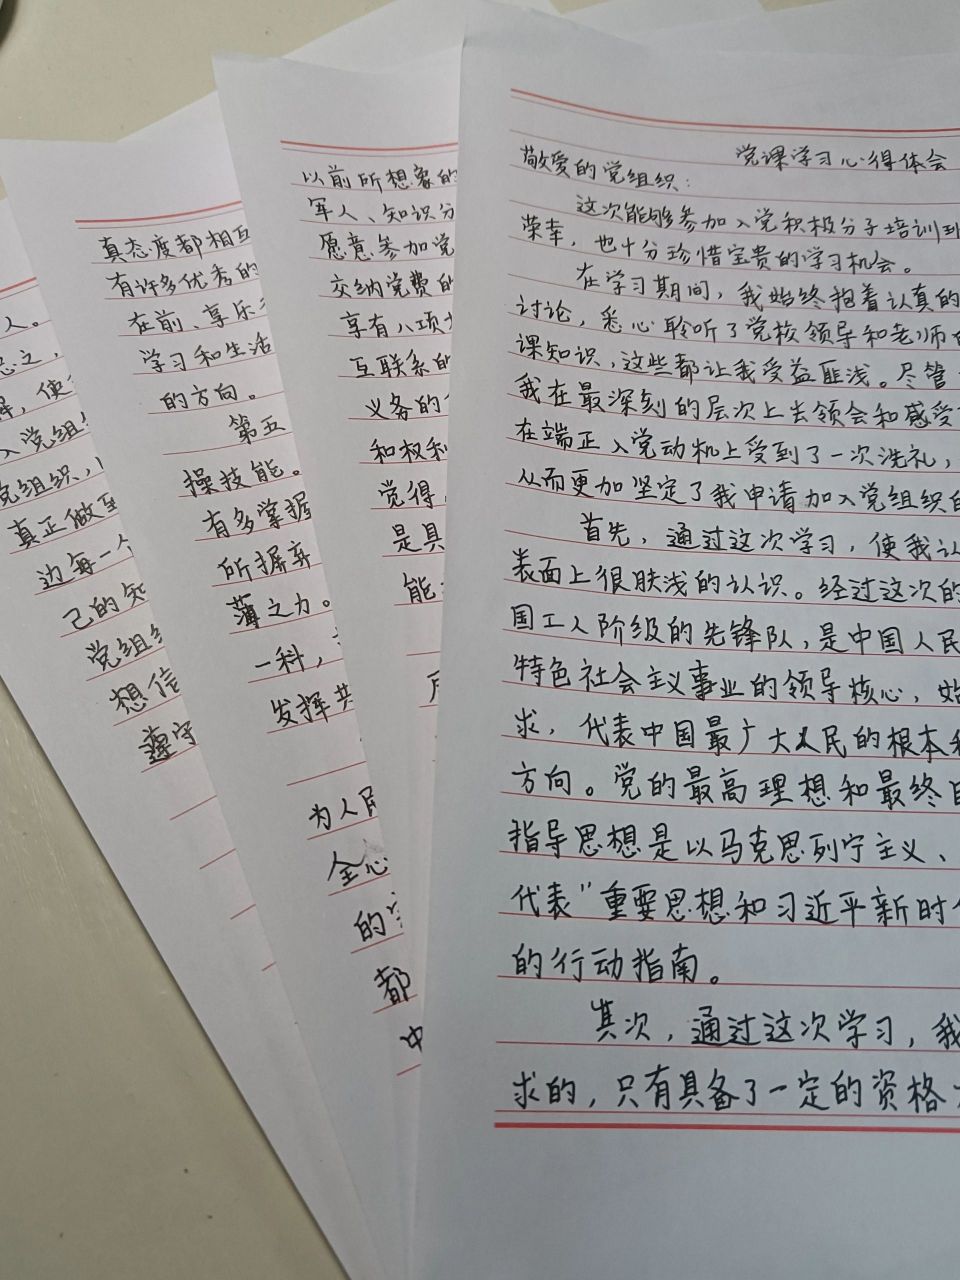 党课学习心得体会
敬爱的党组织：
这次能够参加入党积极分子培训班
荣幸，也十分珍惜宝贵的学习机会。
在学习期间，我始终抱着认真的
讨论，悉心聆听了党校领导和老师的
课知识，这些都让我受益匪浅。尽管
我在最深刻的层次上去领会和感受
在端正入党动机上受到了一次洗礼，
从而更加坚定了我申请加入党组织的
首先，通过这次学习，使我认
表面上很肤浅的认识。经过这次的
国工人阶级的先锋队，是中国人民
特色社会主义事业的领导核心，始
求，代表中国最广大人民的根本利
方向。党的最高理想和最终目
指导思想是以马克思列宁主义、
代表”重要思想和习近平新时代
的行动指南。
其次，通过这次学习，我
求的，只有具备了一定的资格
以前所想象的
军人、知识分
愿意参加党
交纳党费的
享有八项
互联系的
义务的
和权利
觉得，
是具
能
真态度都相互
有许多优秀的
在前、享乐
学习和生活
的方向。
第五
操技能。
有多掌握
所摒弃
薄之力。
一科，
发挥共
为人民
全心
的
都
中
人。
忍之，
解，使
入党组织
党组织，
真正做到
边每一个
己的知
党组织
想信
遵守